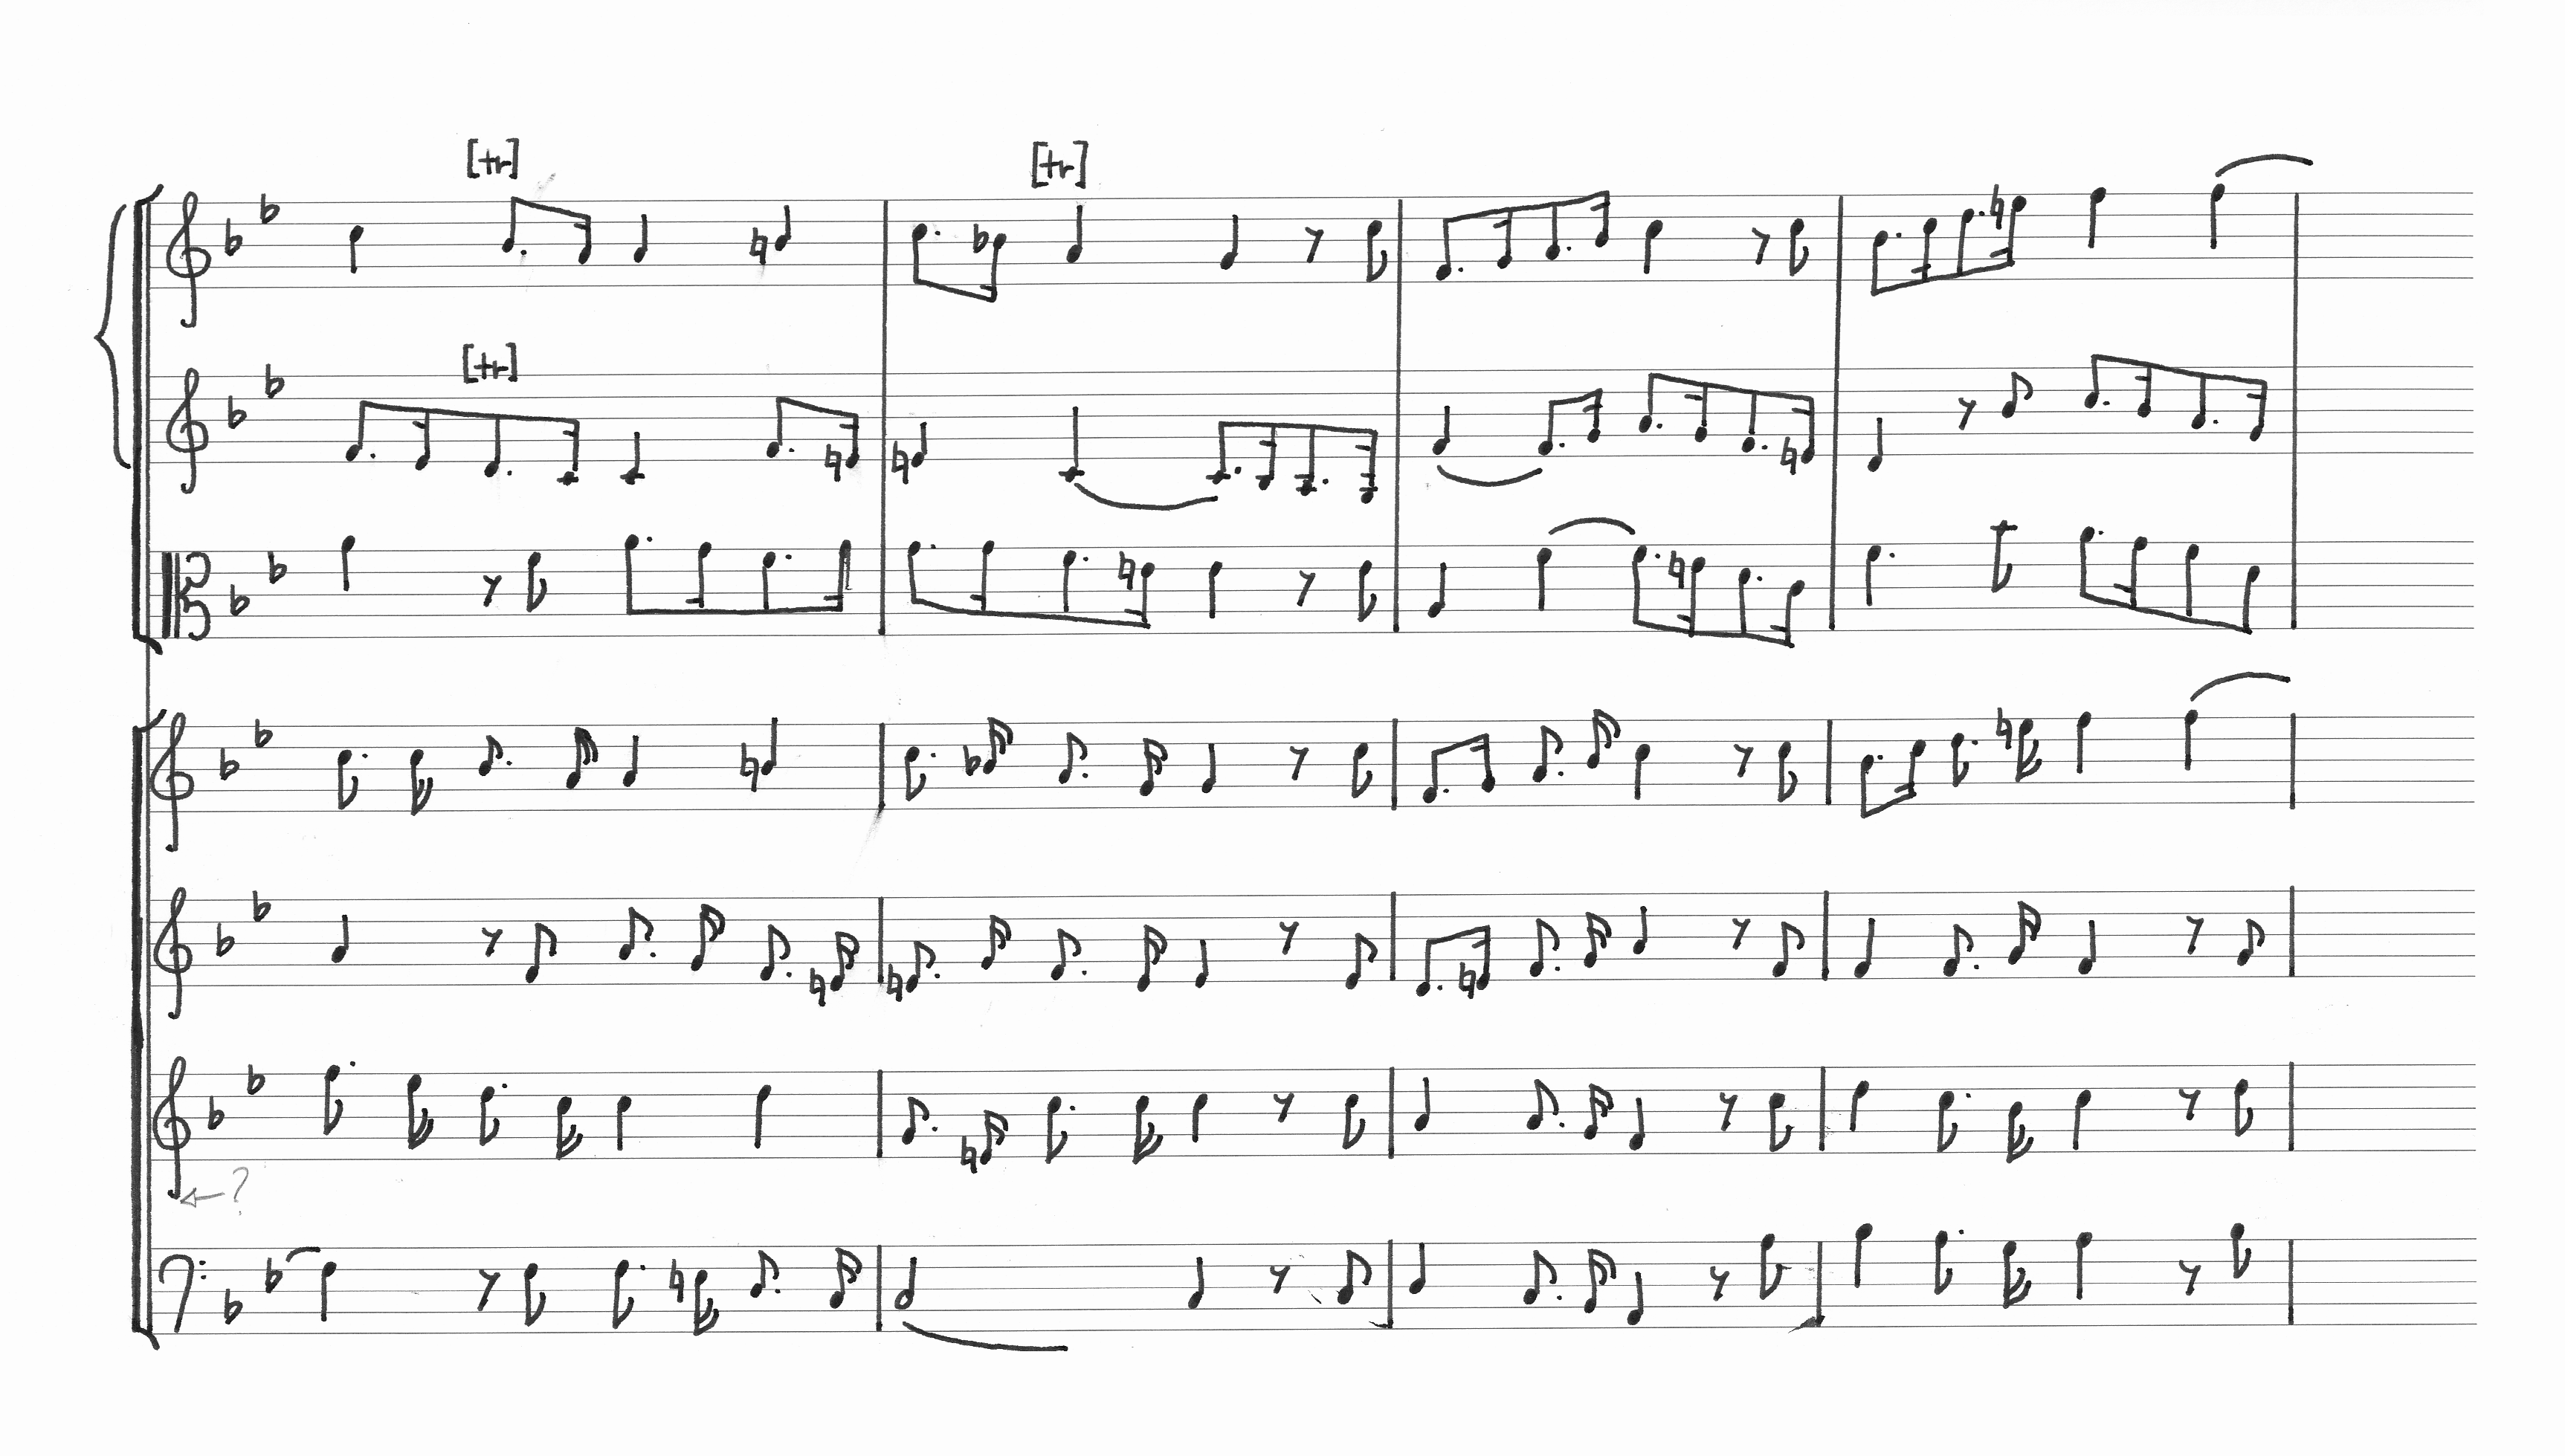 [tr]
[tr]
[tr]
?